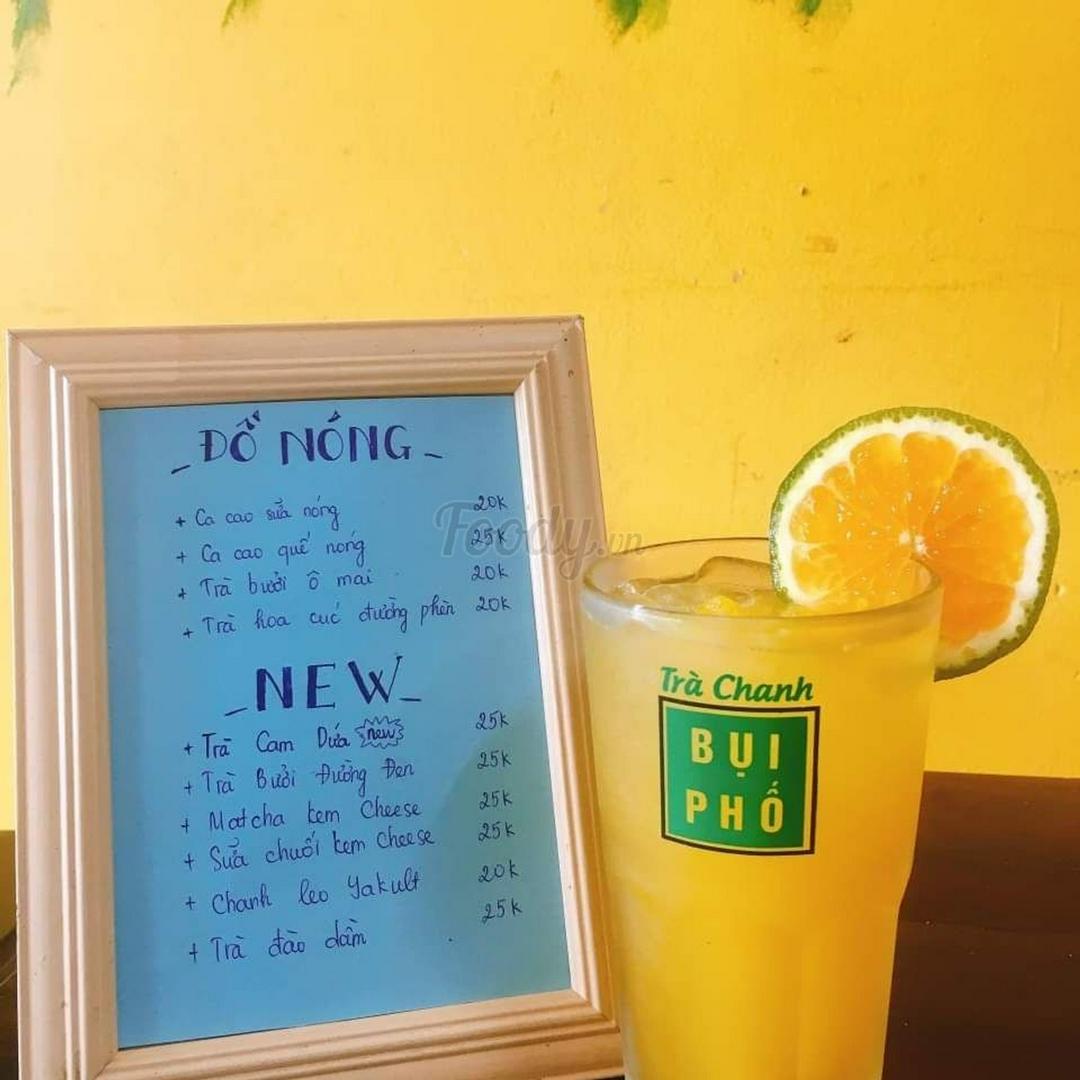 _ĐỒ NÓNG_
+ Ca cao sữa nóng 20k
+ Ca cao quế nóng 25k
+ Trà bưởi ô mai 20k
+ Trà hoa cúc đường phèn 20k
_NEW_
+ Trà Cam Dứa new 25k
+ Trà Bưởi Đường Đen 25k
+ Matcha kem Cheese 25k
+ Sữa chuối kem Cheese 25k
+ Chanh leo Yakult 20k
+ Trà đào dầm 25k
Foody.vn
Trà Chanh
BỤI
PHỐ